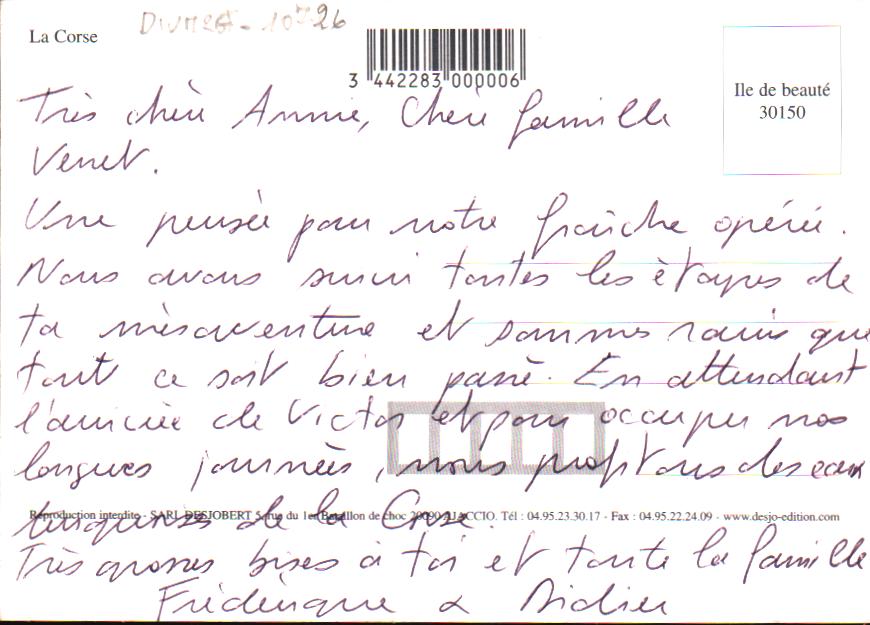 La Corse
3 442283 000006
Ile de beauté
30150
Très chère Annie, Chère famille
Venet.
Une pensée pour notre fraîche opérée.
Nous avons suivi toutes les étapes de
ta mésaventure et sommes ravis que
tout ce soit bien passé. En attendant
l'arrivée de Victor et pour occuper nos
longues journées, nous profitons des eaux
turquoises de la Corse.
Reproduction interdite - SARL DESJOBERT 5, rue du 1er Bataillon de choc 20090 AJACCIO. Tél : 04.95.23.30.17 - Fax : 04.95.22.24.09 - www.desjo-edition.com
Très grosses bises à toi et toute la famille
Frédérique & Didier